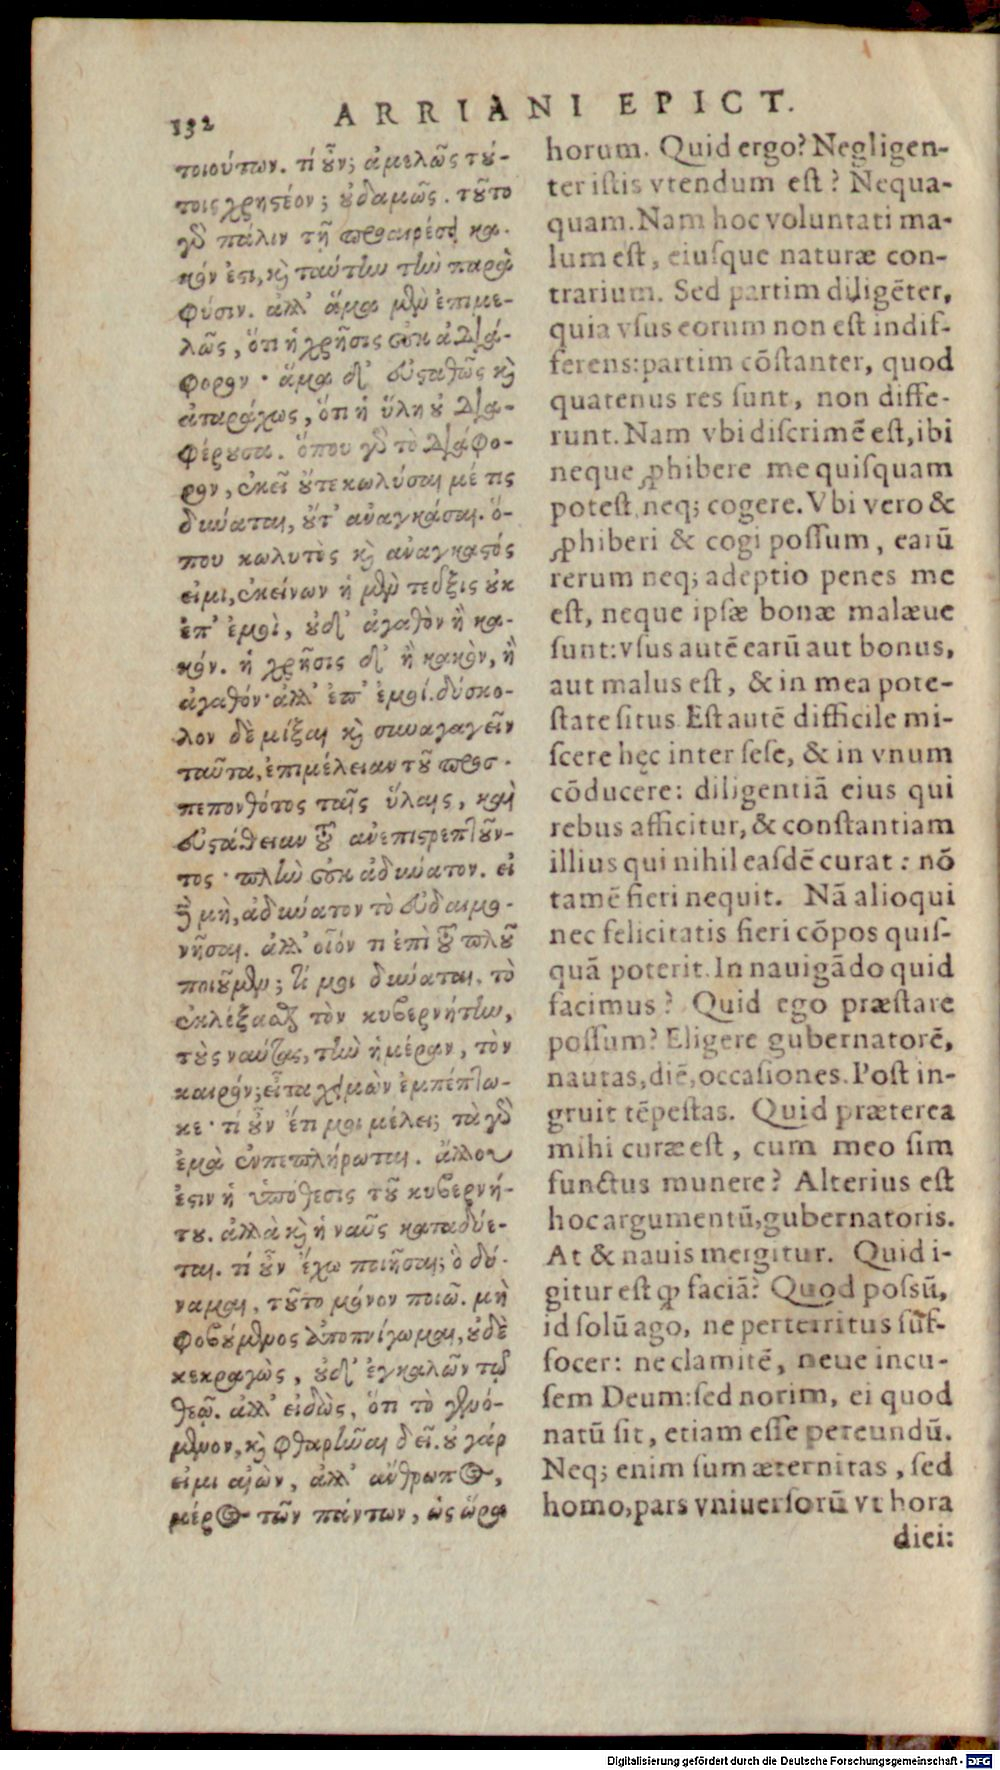 132 ARRIANI EPICT.
ποιούτων. τί οὖν; ἀμελῶς τού-
τοις χρηστέον; οὐδαμῶς. τοῦτο
γὰρ πάλιν τῇ προαιρέσει κα-
κόν ἐστι, καὶ ταύτην τὴν παρὰ
φύσιν. ἀλλ' ἅμα μὲν ἐπιμε-
λῶς, ὅτι ἡ χρῆσις οὐκ ἀδιά-
φορον· ἅμα δ' εὐσταθῶς καὶ
ἀταράχως, ὅτι ἡ ὕλη οὐ δια-
φέρουσα. ὅπου γὰρ τὸ διάφο-
ρον, ἐκεῖ οὔτε κωλῦσαι μέ τις
δύναται, οὔτ' ἀναγκάσαι. ὅ-
που κωλυτὸς καὶ ἀναγκαστός
εἰμι, ἐκείνων ἡ μὲν τεῦξις οὐκ
ἐπ' ἐμοὶ, οὐδ' ἀγαθὸν ἢ κα-
κόν. ἡ χρῆσις δ' ἢ κακὸν, ἢ
ἀγαθόν· ἀλλ' ἐπ' ἐμοί. δύσκο-
λον δὲ μίξαι καὶ συναγαγεῖν
ταῦτα, ἐπιμέλειαν τοῦ προσ-
πεπονθότος ταῖς ὕλαις, καὶ
εὐστάθειαν τοῦ ἀνεπιστρεπτοῦν-
τος· πλὴν οὐκ ἀδύνατον. εἰ
δὲ μὴ, ἀδύνατον τὸ εὐδαιμο-
νῆσαι. ἀλλ' οἷόν τι ἐπὶ τοῦ πλοῦ
ποιοῦμεν; τί μοι δύναται. τὸ
ἐκλέξασθαι τὸν κυβερνήτην,
τοὺς ναύτας, τὴν ἡμέραν, τὸν
καιρόν; εἶτα χειμὼν ἐμπέπτω-
κε· τί οὖν ἔτι μοι μέλει; τὰ γὰρ
ἐμὰ ἐκπεπλήρωται. ἄλλου
ἐστὶν ἡ ὑπόθεσις τοῦ κυβερνή-
του. ἀλλὰ καὶ ἡ ναῦς καταδύε-
ται. τί οὖν ἔχω ποιῆσαι; ὃ δύ-
ναμαι, τοῦτο μόνον ποιῶ. μὴ
φοβούμενος ἀποπνίγωμαι, οὐδὲ
κεκραγὼς, οὐδ' ἐγκαλῶν τῷ
θεῷ. ἀλλ' εἰδὼς, ὅτι τὸ γενό-
μενον, καὶ φθαρῆναι δεῖ. οὐ γάρ
εἰμι αἰὼν, ἀλλ' ἄνθρωπος,
μέρος τῶν πάντων, ὡς ὥρα
horum. Quid ergo? Negligen-
ter istis vtendum est? Nequa-
quam. Nam hoc voluntati ma-
lum est, eiusque naturæ con-
trarium. Sed partim diligẽter,
quia vsus eorum non est indif-
ferens: partim cõstanter, quod
quatenus res sunt, non diffe-
runt. Nam vbi discrimẽ est, ibi
neque ꝓhibere me quisquam
potest, neq; cogere. Vbi vero &
ꝓhiberi & cogi possum, earũ
rerum neq; adeptio penes me
est, neque ipsæ bonæ malæue
sunt: vsus autẽ earũ aut bonus,
aut malus est, & in mea pote-
state situs Est autẽ difficile mi-
scere hęc inter sese, & in vnum
cõducere: diligentiã eius qui
rebus afficitur, & constantiam
illius qui nihil easdẽ curat: nõ
tamẽ fieri nequit. Nã alioqui
nec felicitatis fieri cõpos quis-
quã poterit. In nauigãdo quid
facimus? Quid ego præstare
possum? Eligere gubernatorẽ,
nautas, diẽ, occasiones. Post in-
gruit tẽpestas. Quid præterea
mihi curæ est, cum meo sim
functus munere? Alterius est
hoc argumentũ, gubernatoris.
At & nauis mergitur. Quid i-
gitur est ꝙ faciã? Quod possũ,
id solũ ago, ne perterritus suf-
focer: ne clamitẽ, neue incu-
sem Deum: sed norim, ei quod
natũ sit, etiam esse pereundũ.
Neq; enim sum æternitas, sed
homo, pars vniuersorũ vt hora
diei:
Digitalisierung gefördert durch die Deutsche Forschungsgemeinschaft - DFG